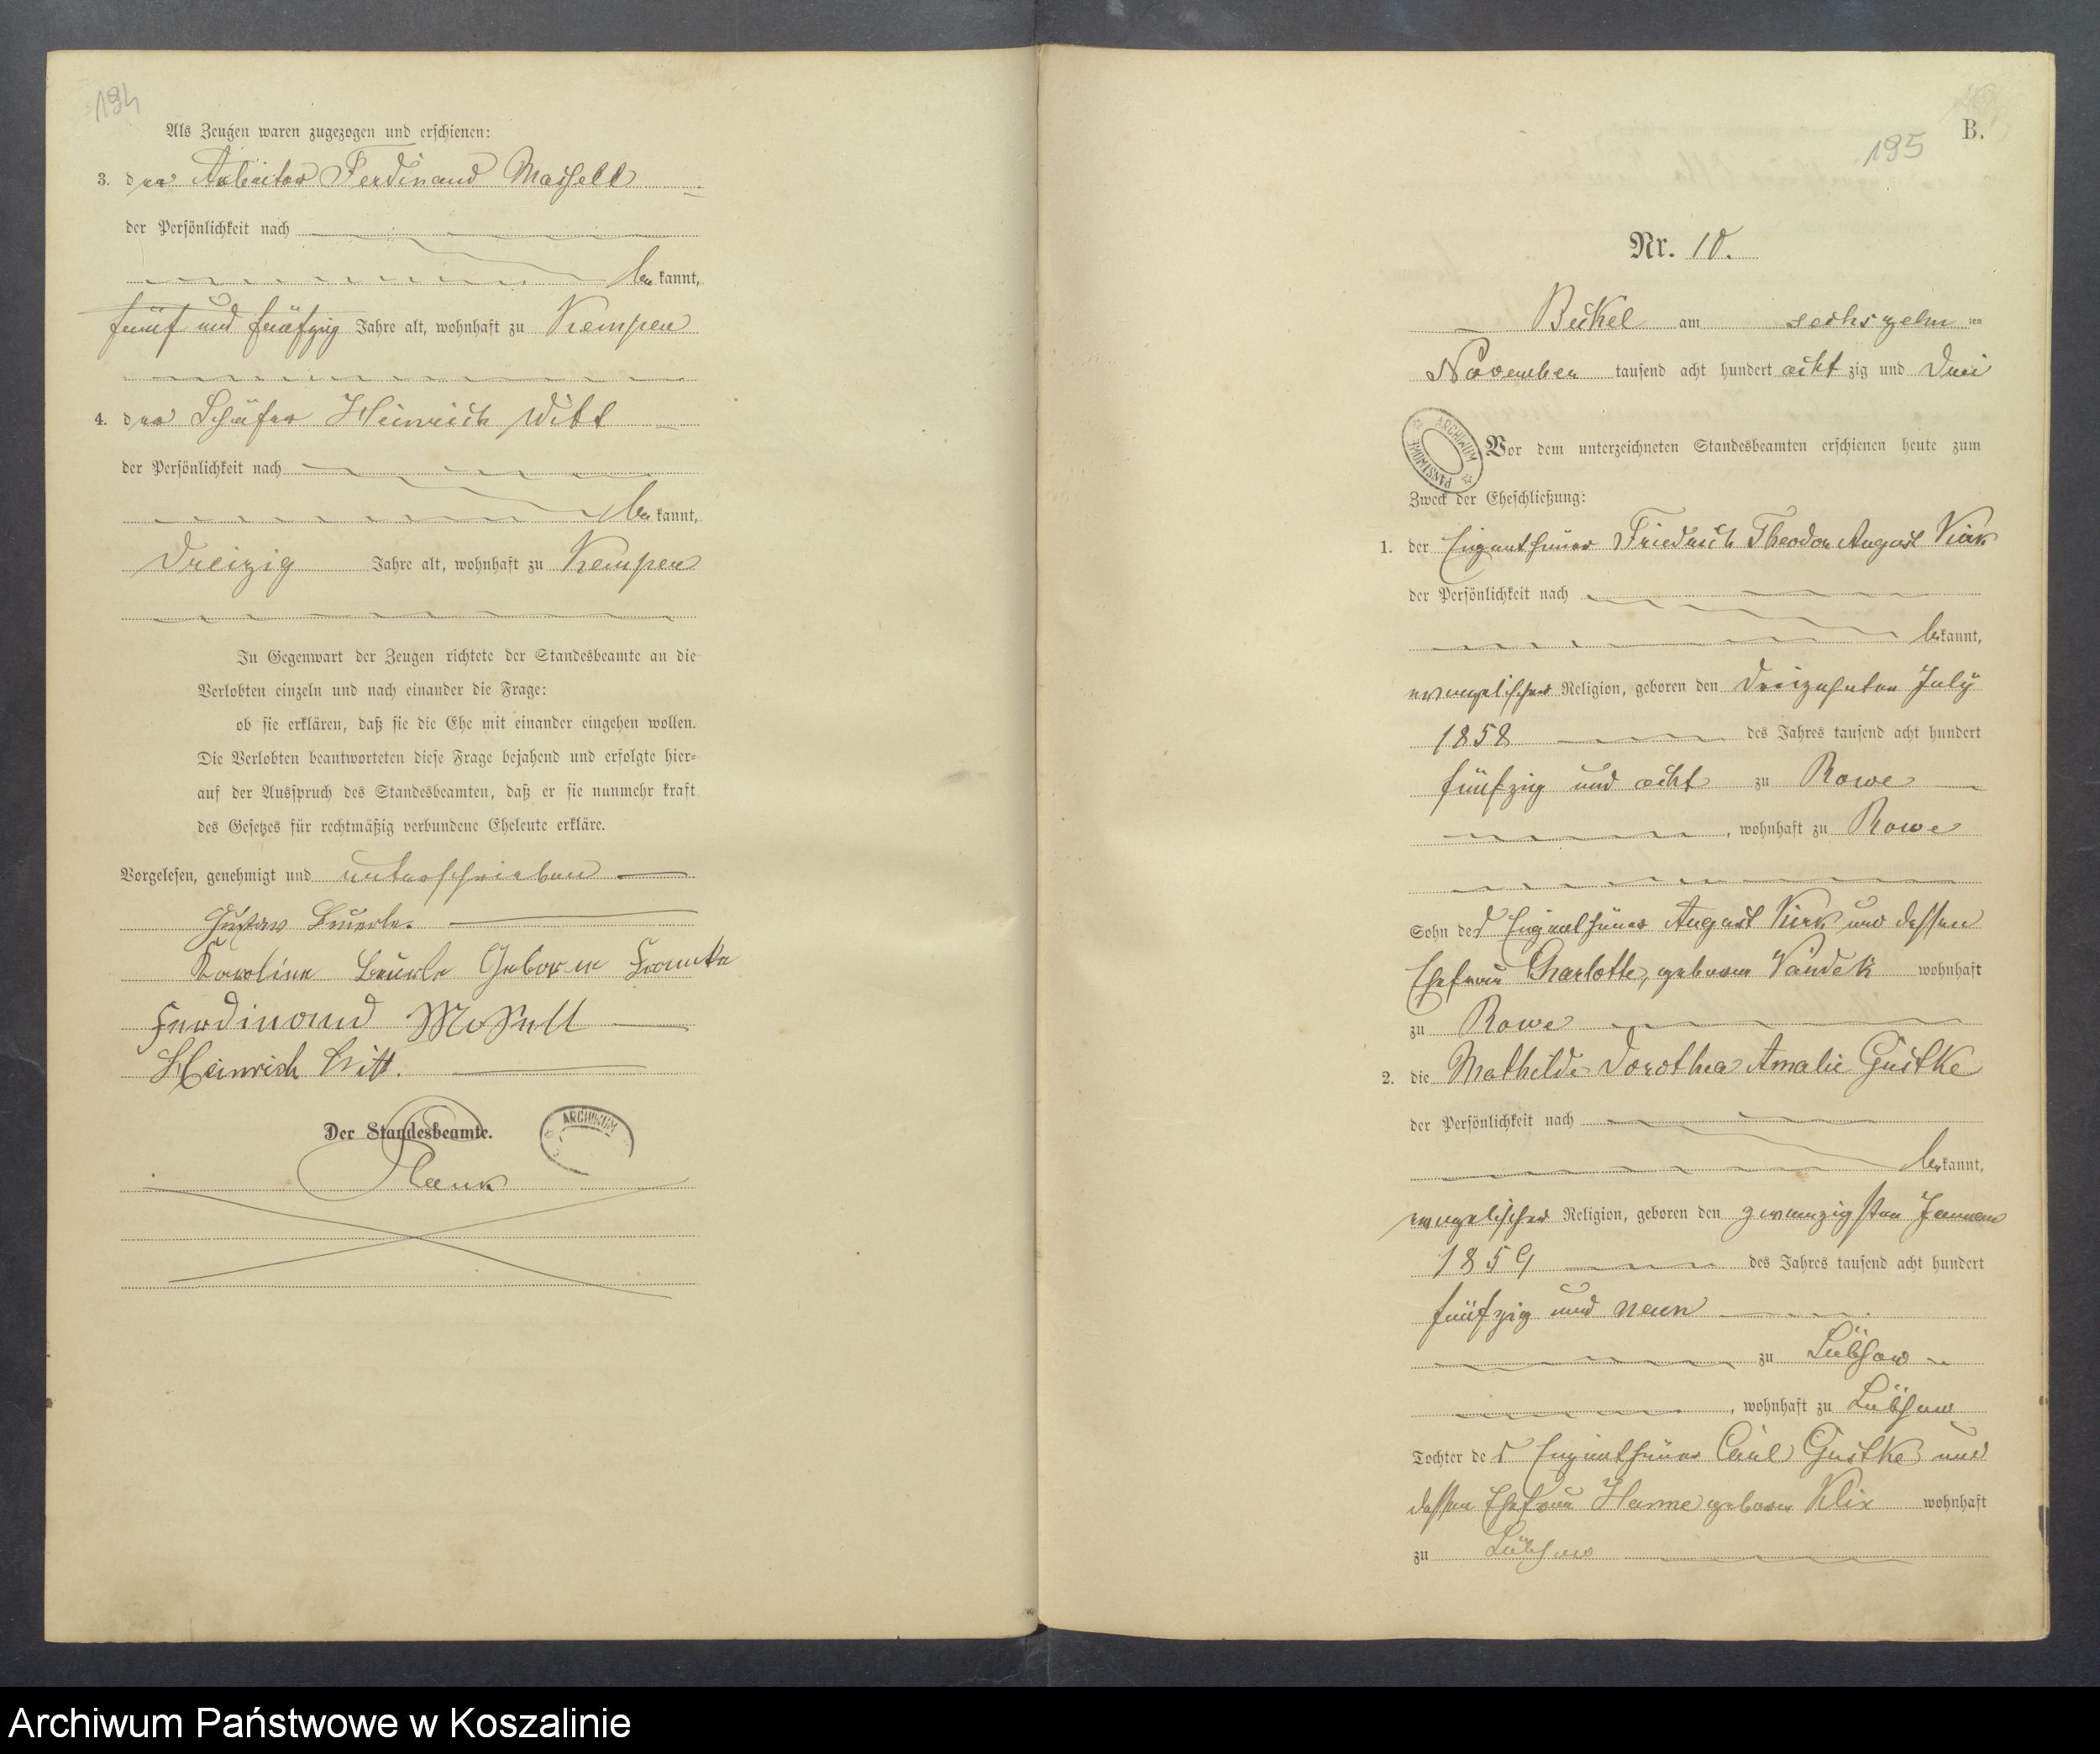 194
Als Zeugen waren zugezogen und erschienen:
3. der Arbeiter Ferdinand Massell
der Persönlichkeit nach
be kannt,
fünf und fünfzig Jahre alt, wohnhaft zu Kempen
4. der Schäfer Heinrich Witt
der Persönlichkeit nach
be kannt,
dreizig Jahre alt, wohnhaft zu Kempen
In Gegenwart der Zeugen richtete der Standesbeamte an die
Verlobten einzeln und nach einander die Frage:
ob sie erklären, daß sie die Ehe mit einander eingehen wollen.
Die Verlobten beantworteten diese Frage bejahend und erfolgte hier-
auf der Ausspruch des Standesbeamten, daß er sie nunmehr kraft
des Gesetzes für rechtmäßig verbundene Eheleute erkläre.
Vorgelesen, genehmigt und unterschrieben
Gustav Beuerle.
Karoline Geborne
Ferdinand Massell
Heinrich Witt.
Der Standesbeamte.
ARCHIWUM
195
B.
Nr. 10.
Beckel am sechszehn ten
November tausend acht hundert acht zig und drei
ARCHIWUM PAŃSTWOWE
Vor dem unterzeichneten Standesbeamten erschienen heute zum
Zweck der Eheschließung:
1. der Eigenthümer Friedrich Theodor August Kirk
der Persönlichkeit nach
be kannt,
evangelischer Religion, geboren den dreizehnten July
1858 des Jahres tausend acht hundert
fünfzig und acht zu Rowe
, wohnhaft zu Rowe
Sohn des Eigenthümer August Kirk und dessen
Ehefrau Charlotte, geboren Vandek wohnhaft
zu Rowe
2. die Mathilde Dorothea Amalie Gustke
der Persönlichkeit nach
be kannt,
evangelischer Religion, geboren den zwanzigsten Januar
1859 des Jahres tausend acht hundert
fünfzig und neun
zu Lübzow
, wohnhaft zu Lübzow
Tochter des Eigenthümer Carl Gustke und
dessen Ehefrau Hanne geboren Klix wohnhaft
zu Lübzow
Archiwum Państwowe w Koszalinie